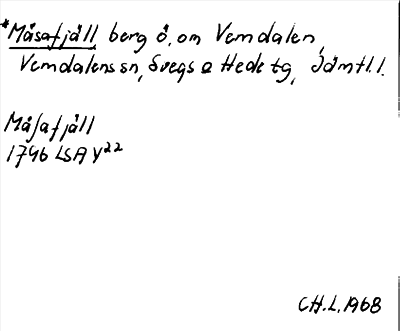 *Måsafjäll, berg ö. om Vemdalen,
Vemdalens sn, Svegs o Hede tg, Jämtl. l.
Måsafjäll
1746 LSA Y²²
CH.L. 1968